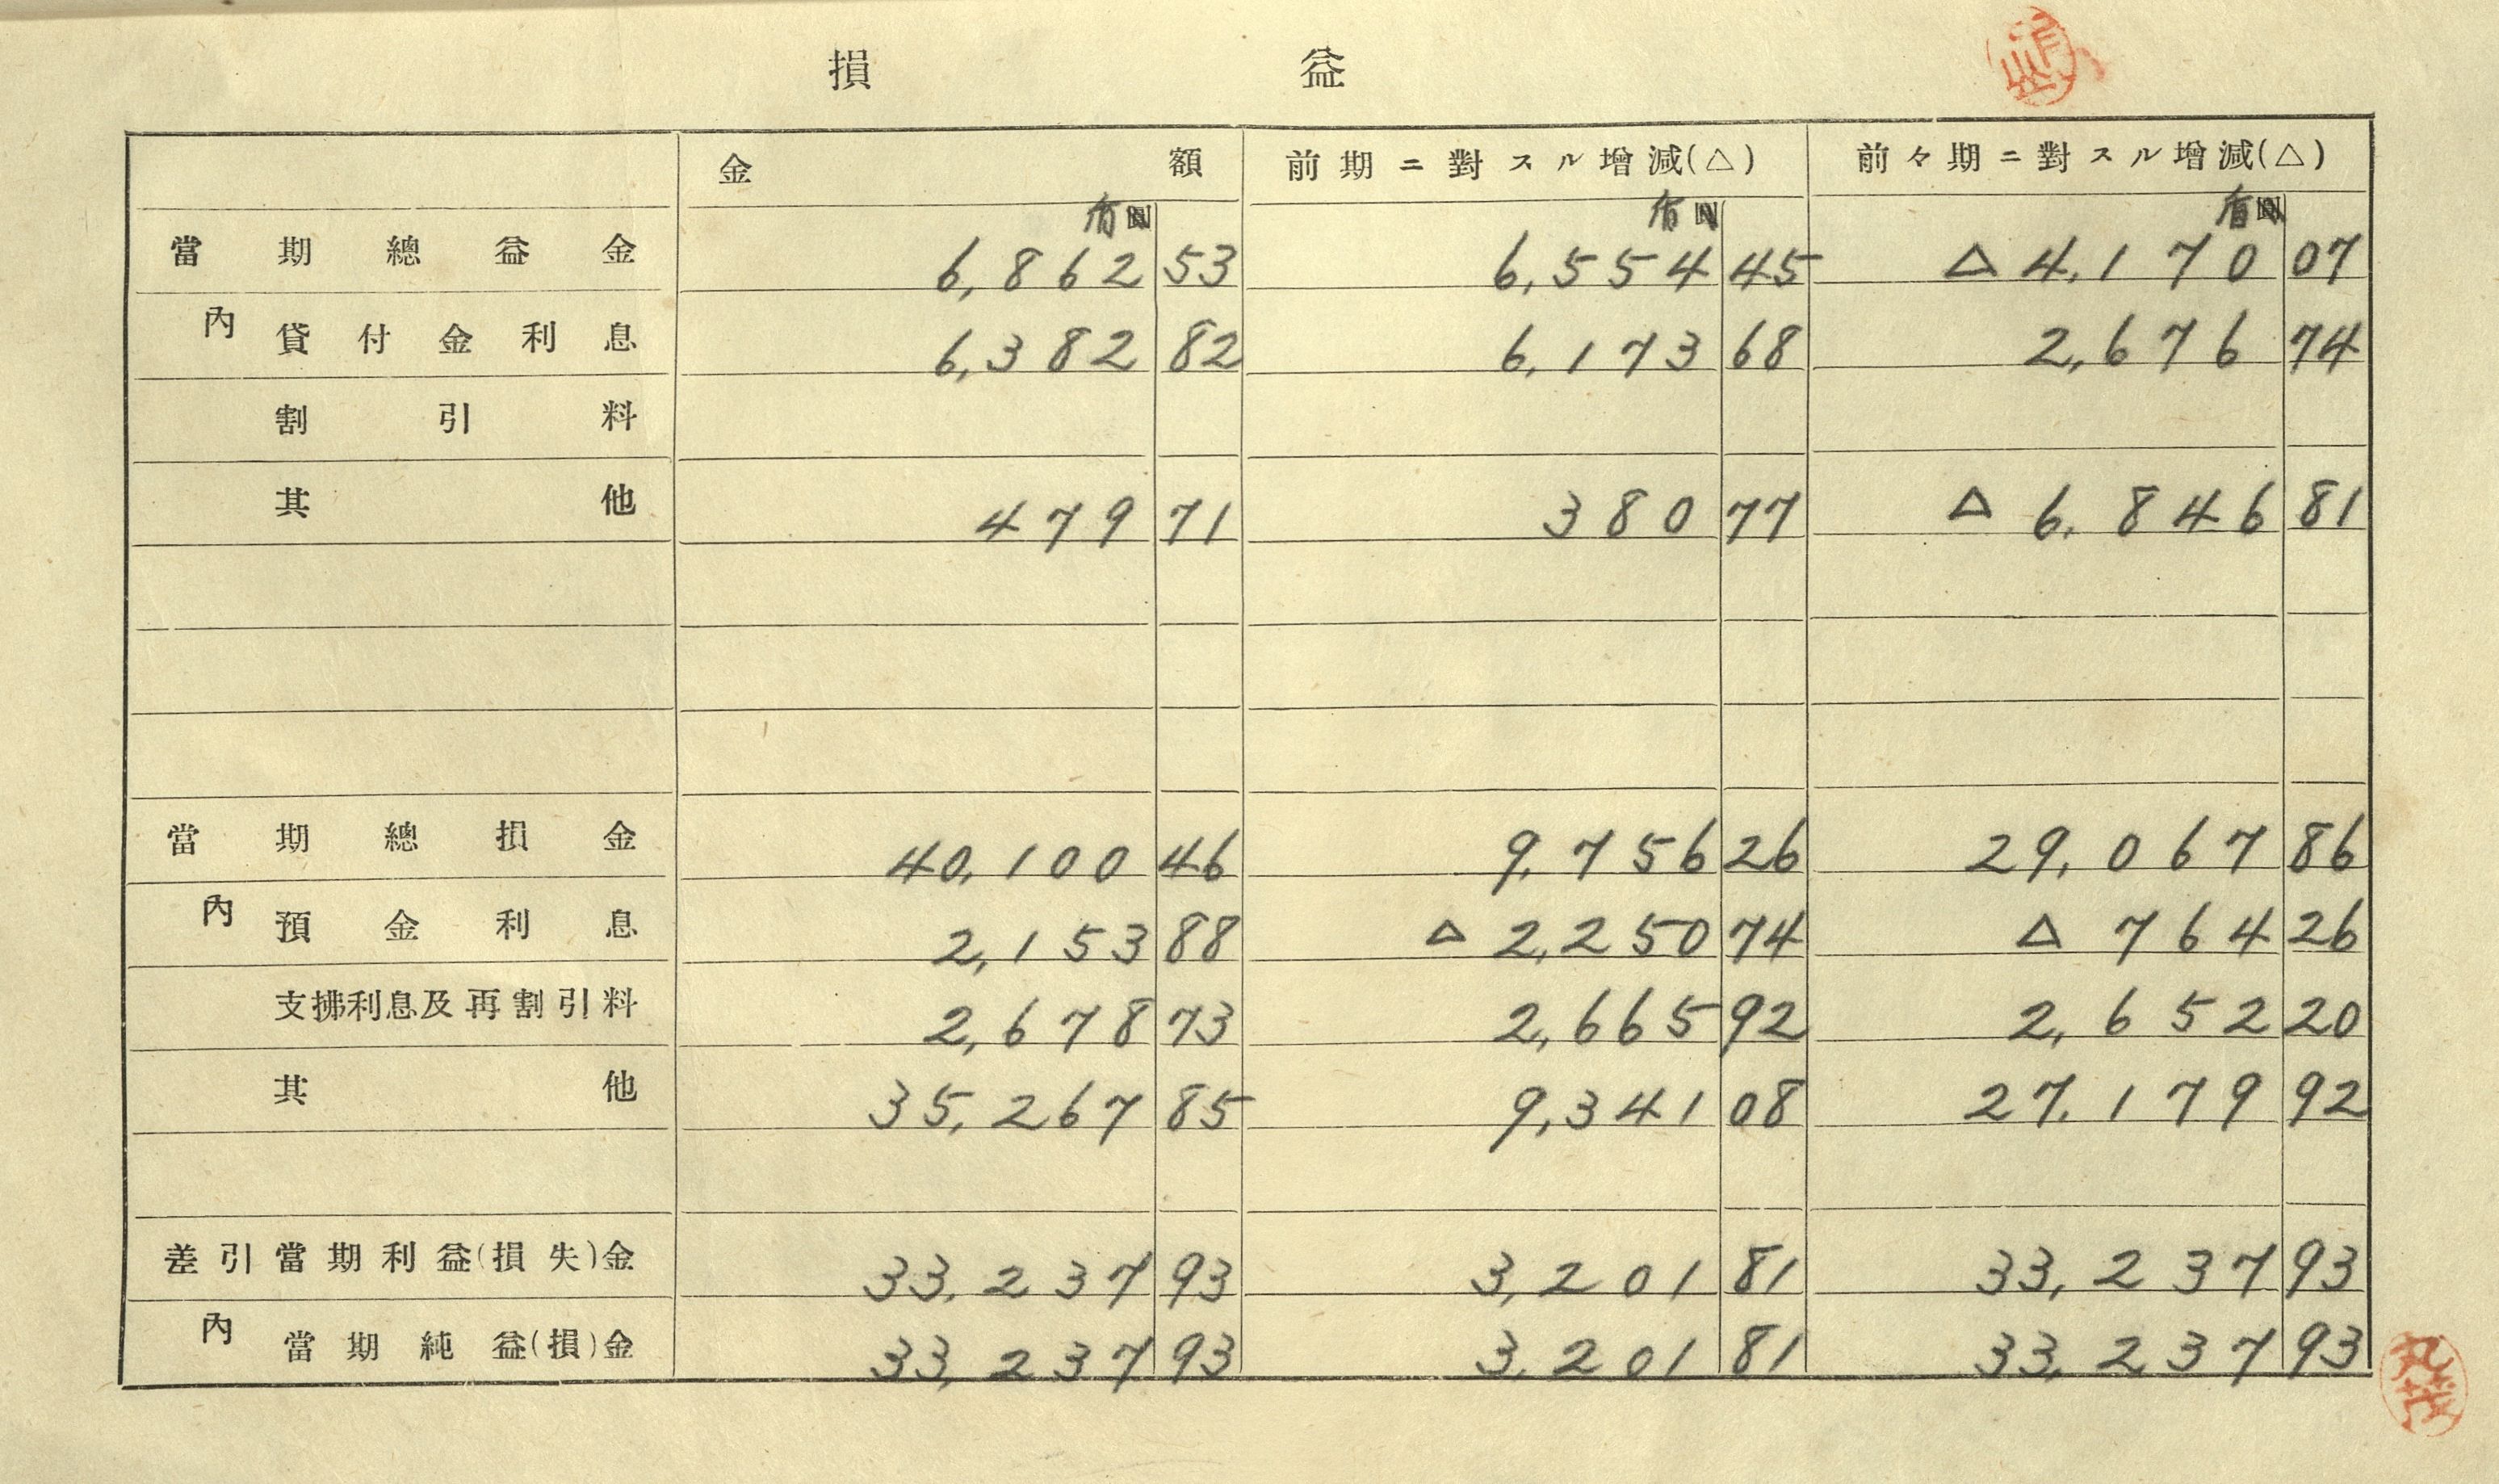 損益
金額 前期ニ對スル增減(△) 前々期ニ對スル增減(△)
當期總益金 6,862 53 6,554 45 △4,170 07
內 貸付金利息 6,382 82 6,173 68 2,676 74
割引料
其他 479 71 380 77 △6,846 81
當期總損金 40,100 46 9,756 26 29,067 86
內 預金利息 2,153 88 △2,250 74 △764 26
支拂利息及再割引料 2,678 73 2,665 92 2,652 20
其他 35,267 85 9,341 08 27,179 92
差引當期利益(損失)金 33,237 93 3,201 81 33,237 93
內 當期純益(損)金 33,237 93 3,201 81 33,237 93